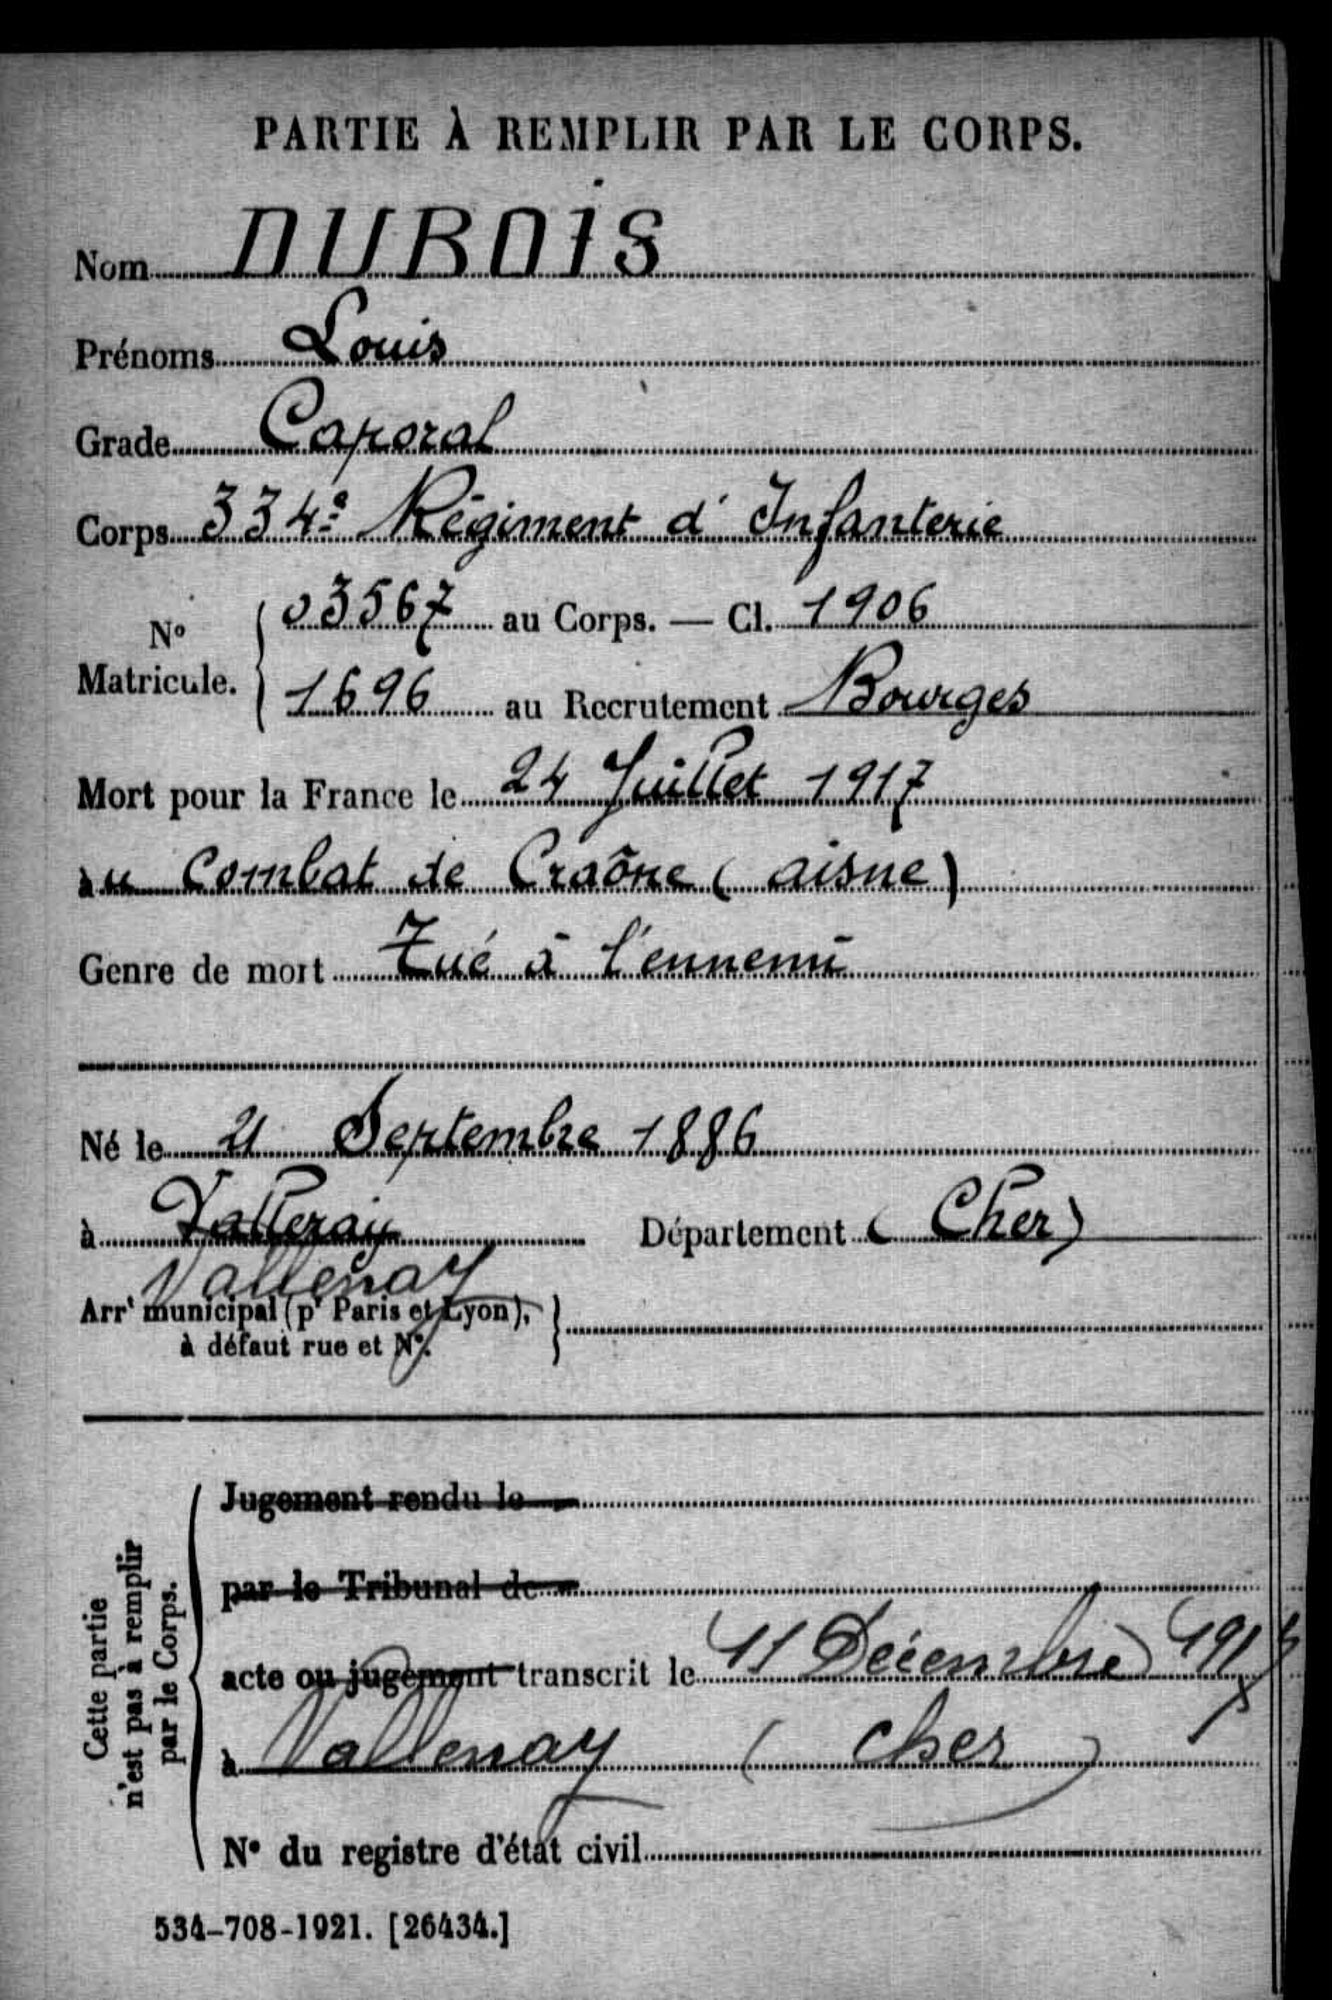 PARTIE À REMPLIR PAR LE CORPS.
Nom DUBOIS
Prénoms Louis
Grade Caporal
Corps 334e Régiment d'Infanterie
No Matricule. 03567 au Corps. — Cl. 1906
1696 au Recrutement Bourges
Mort pour la France le 24 Juillet 1917
au Combat de Craône (aisne)
Genre de mort Tué à l'ennemi
Né le 21 Septembre 1886
à Valleray Département (Cher)
Vallenay
Arrt municipal (pr Paris et Lyon),
à défaut rue et No.
Cette partie
n'est pas à remplir
par le Corps.
Jugement rendu le
par le Tribunal de
acte ou jugement transcrit le 11 Décembre 1917
à Vallenay (Cher)
No du registre d'état civil
534-708-1921. [26434.]